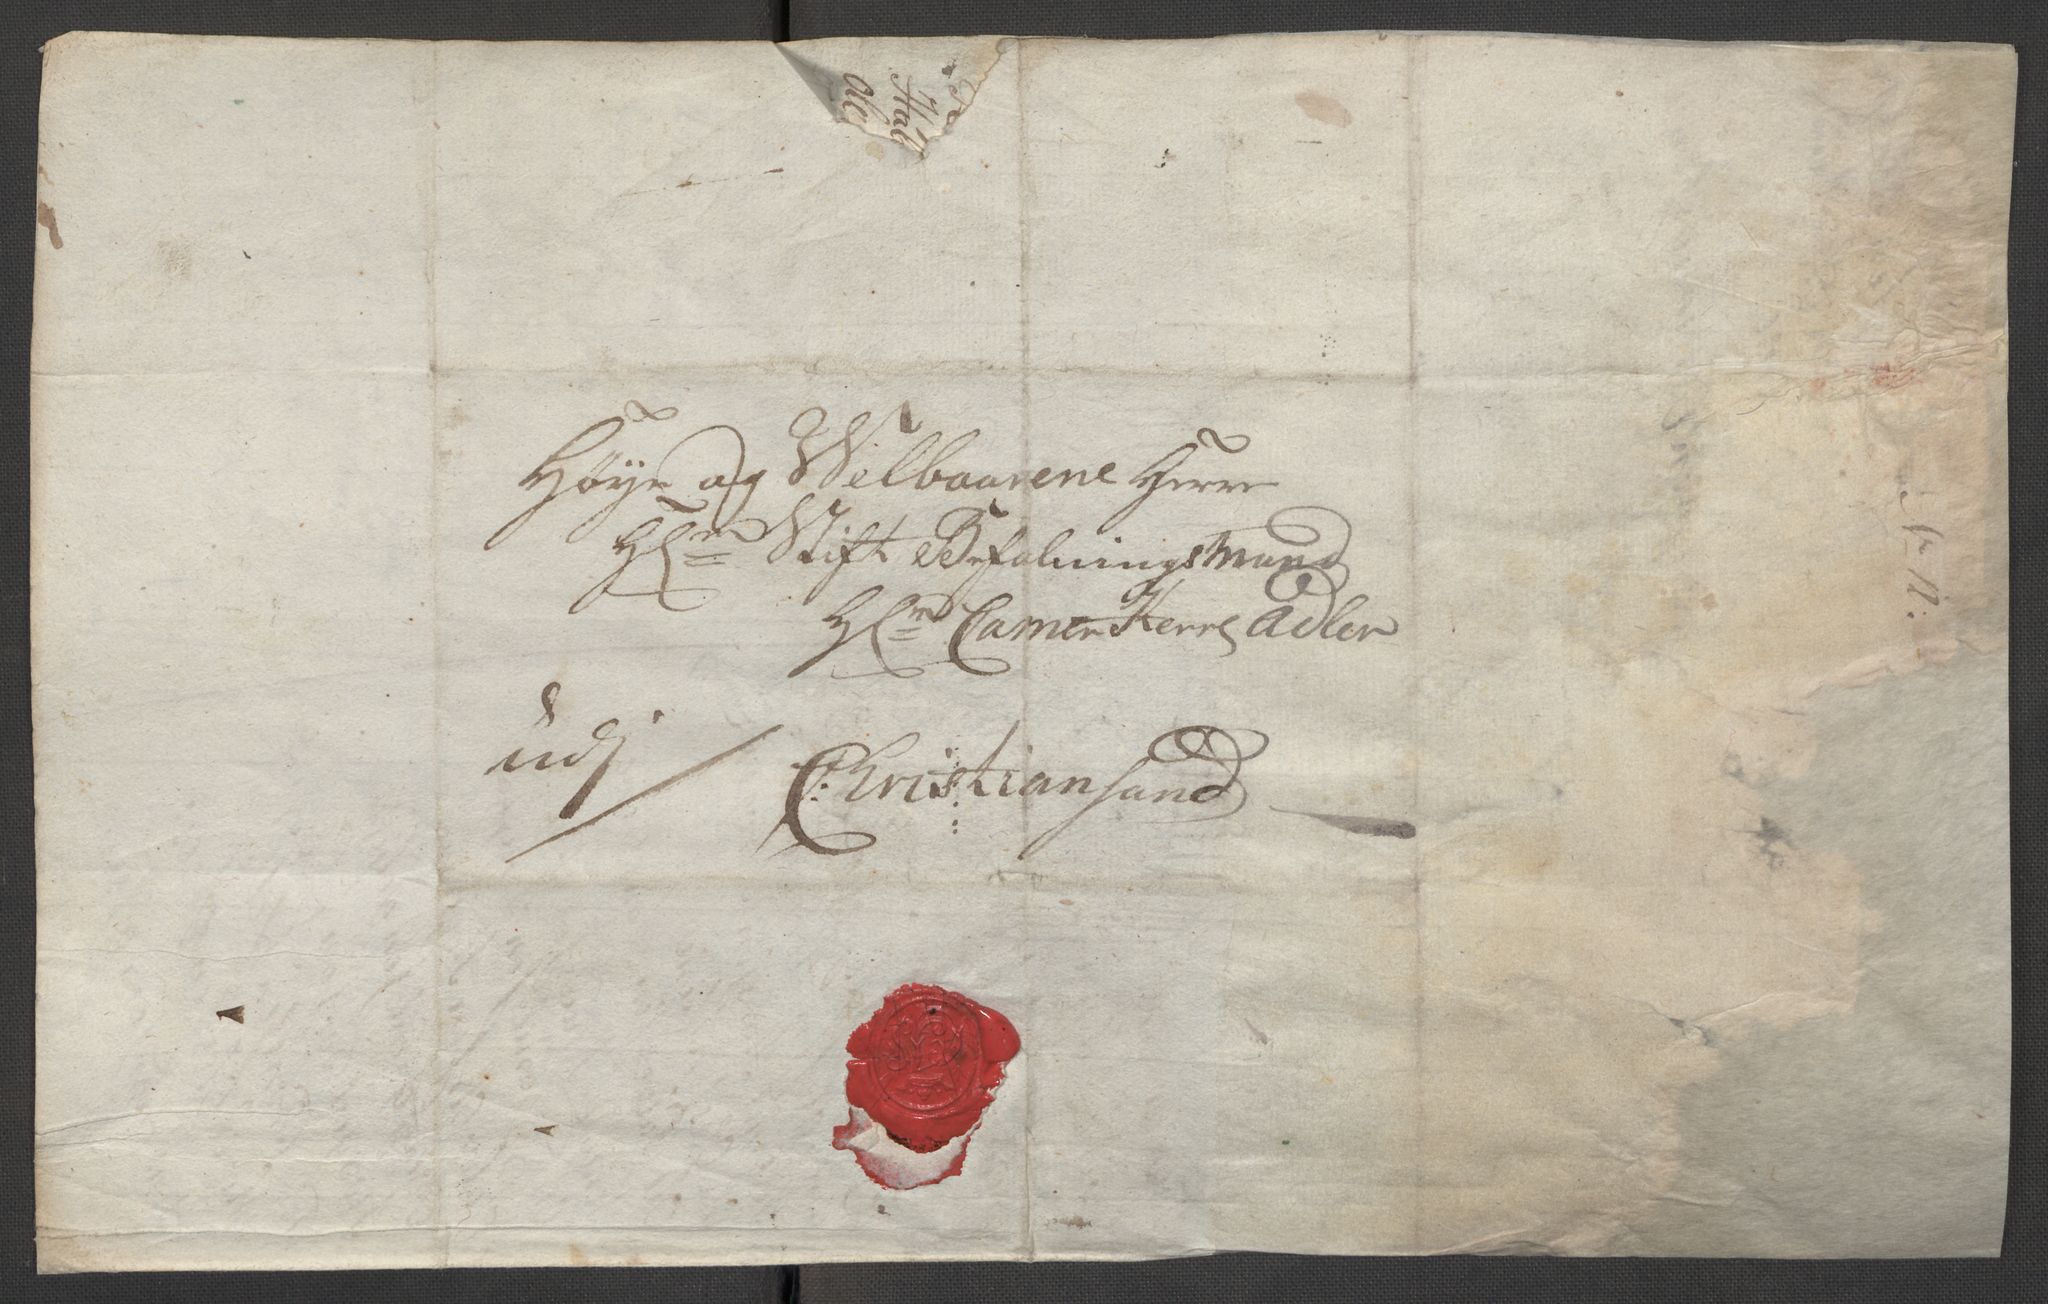 Høye og Welbaarene Herre
Hr: Stift Befalningsmand
Hr: Camer Herre Adler
udj
Christiansand